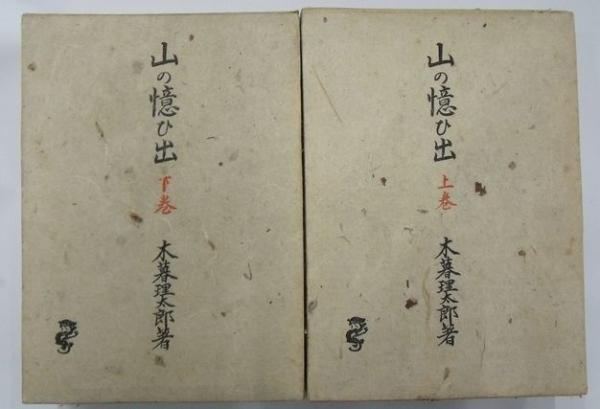 山の憶ひ出
上巻
木暮理太郎著
山の憶ひ出
下巻
木暮理太郎著